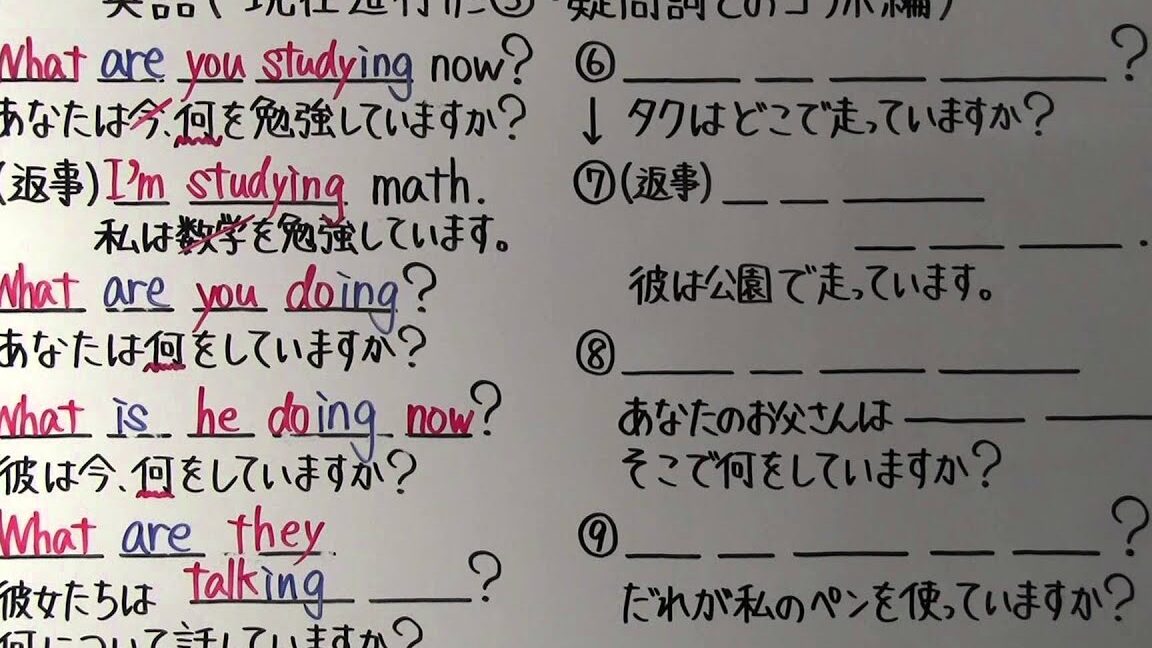 英語(現在進行形③・疑問詞とのコラボ編)
What are you studying now?
あなたは今、何を勉強していますか?
(返事) I'm studying math.
私は数学を勉強しています。
What are you doing?
あなたは何をしていますか?
What is he doing now?
彼は今、何をしていますか?
What are they
talking ?
彼女たちは
何について話していますか?
⑥ ?
↓ タクはどこで走っていますか?
⑦(返事)
.
彼は公園で走っています。
⑧
あなたのお父さんは
そこで何をしていますか?
⑨ ?
だれが私のペンを使っていますか?